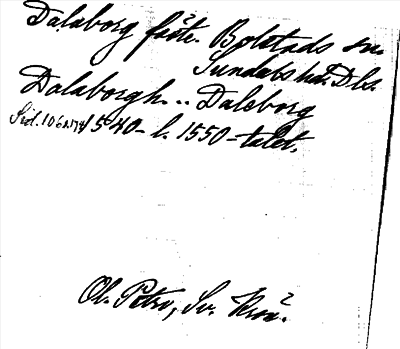 Dalaborg fäste. Bolstads sn.
Sundals hd. Dls.
Dalaborgh .. Daleborg
Sid. 106 1540- l. 1550-talet.
Ol. Petri, Sv. Krön.